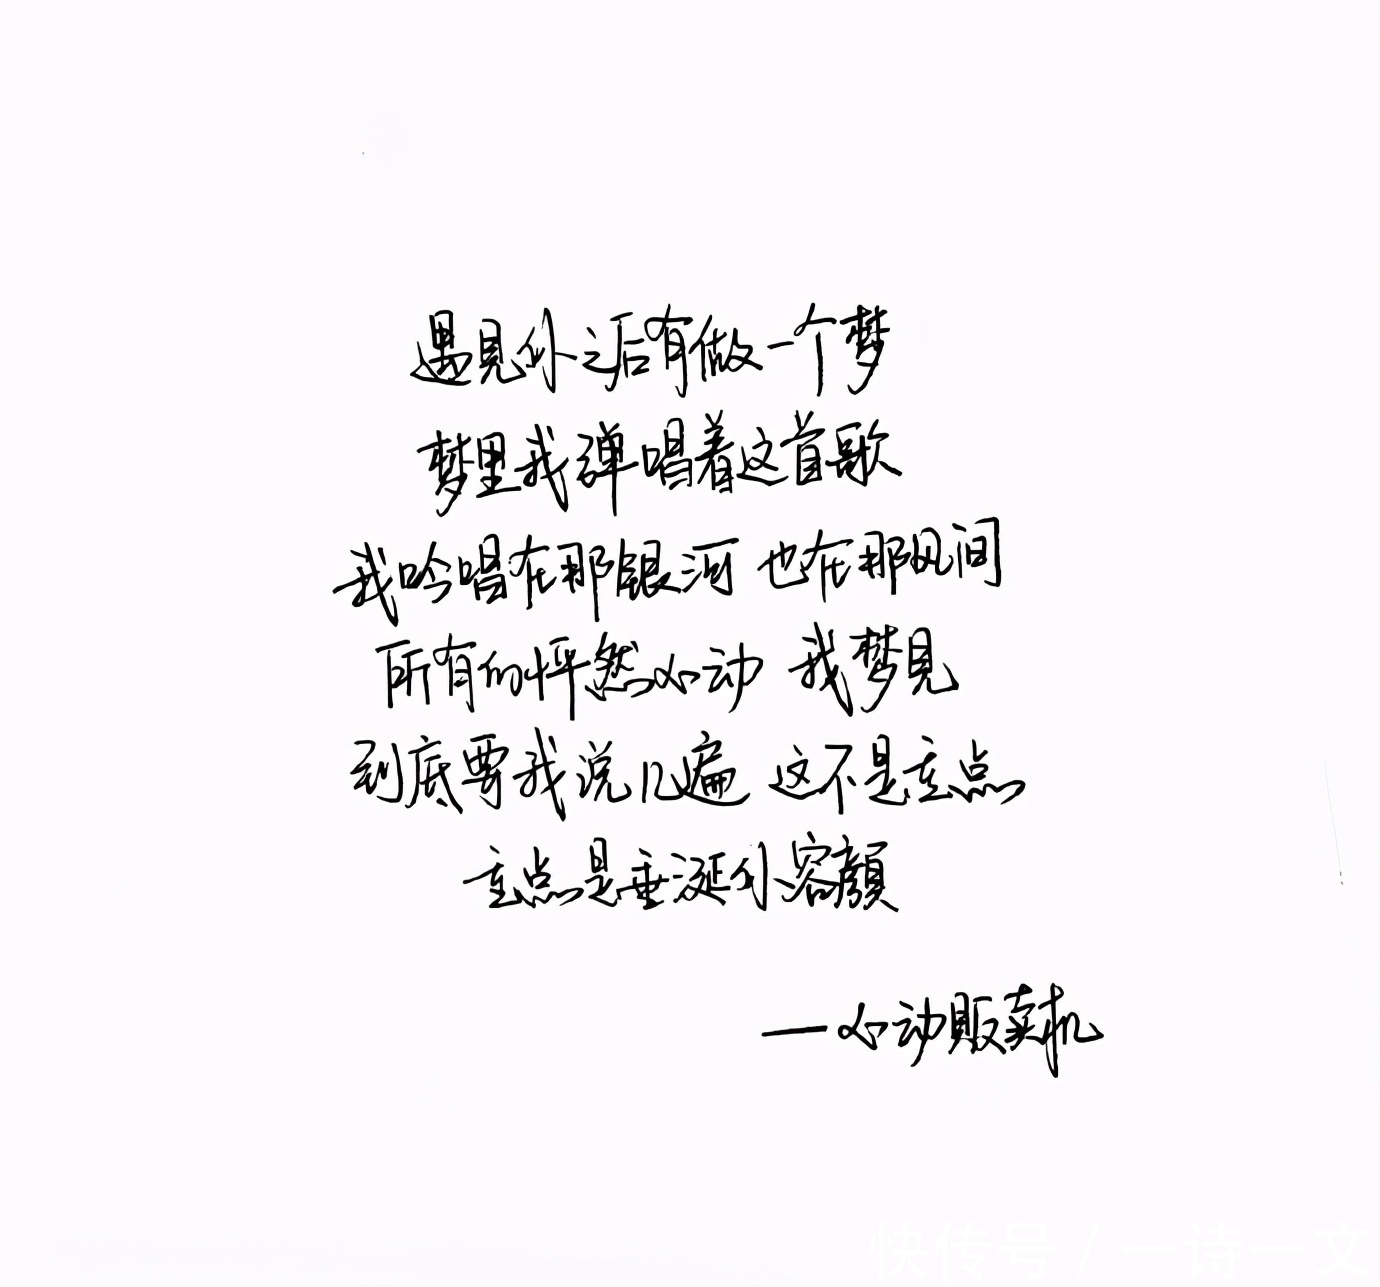 遇見你之后有做一个梦
梦里我弹唱着这首歌
我吟唱在那银河 也在那风间
所有的怦然心动 我梦見
到底要我说几遍 这不是重点
重点是垂涎你容颜
一心动販卖机
快传号 / 一诗一文